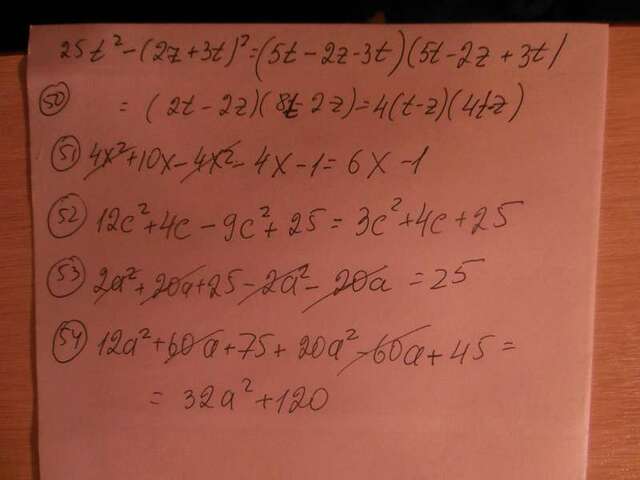 25t² - (2z + 3t)² = (5t - 2z - 3t)(5t - 2z + 3t)
50 = (2t - 2z)(8t - 2z) = 4(t - z)(4t - z)
51 4x² + 10x - 4x² - 4x - 1 = 6x - 1
52 12c² + 4c - 9c² + 25 = 3c² + 4c + 25
53 2a² + 20a + 25 - 2a² - 20a = 25
54 12a² + 60a + 75 + 20a² - 60a + 45 =
= 32a² + 120